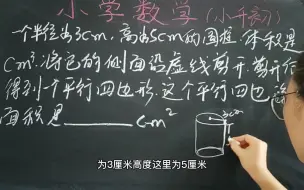 小学数学(小升初)
一个半径为3cm,高为5cm的圆柱,体积是
cm³.将它的侧面沿虚线剪开,剪开后
得到一个平行四边形.这个平行四边形
面积是 cm²
3cm
为3厘米高度这里为5厘米